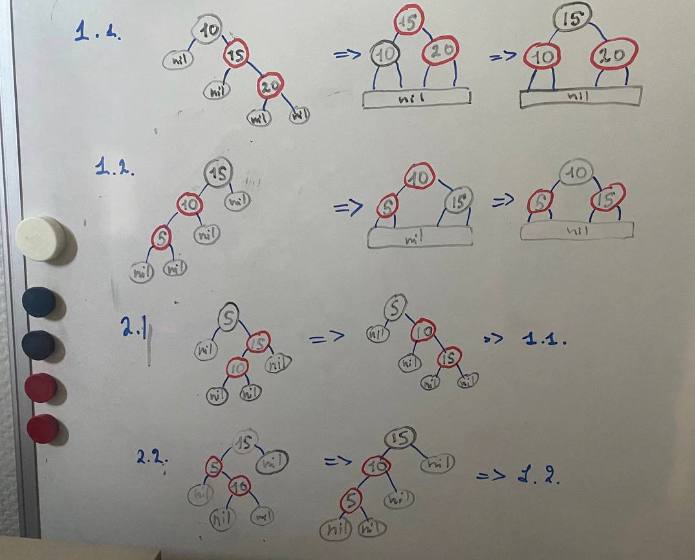 1.1.
10
nil 15
nil 20
nil nil
=>
15
10 20
nil
=>
15
10 20
nil
1.2.
15
10 nil
5 nil
nil nil
=>
10
5 15
nil
=>
10
5 15
nil
2.1
5
nil 15
10 nil
nil nil
=>
5
nil 10
nil 15
nil nil
=> 1.1.
2.2.
15
5 nil
nil 10
nil nil
=>
15
10 nil
5 nil
nil nil
=> 1.2.